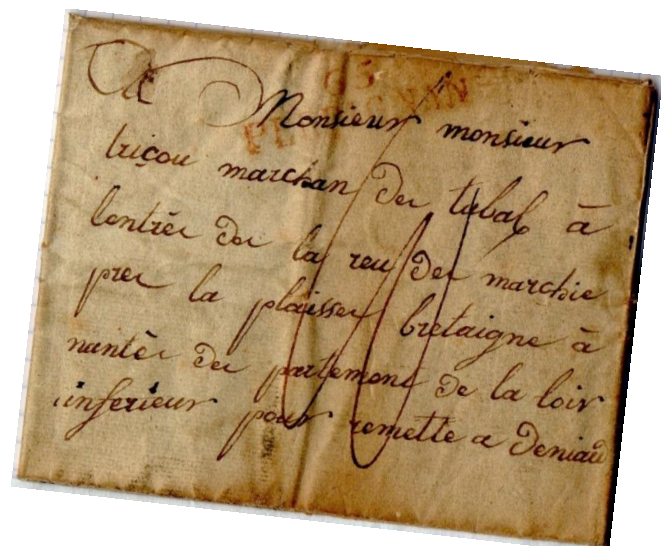 65
PERPIGNAN
A Monsieur monsieur
triçou marchan de tabaf à
lentrée de la reu de marchie
pre la plaisse bretaigne à
nantée de partement de la loir
inferieur pour remette a Deniau